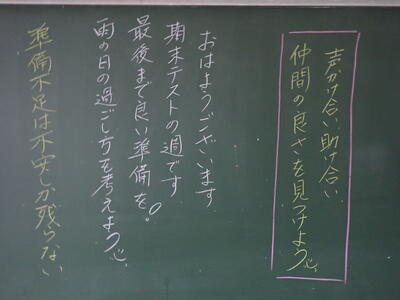 声かけ合い助け合い
仲間の良さを見つけよう。
おはようございます
期末テストの週です
最後まで良い準備を。
雨の日の過ごし方を考えよう。
準備不足は不実しか残らない